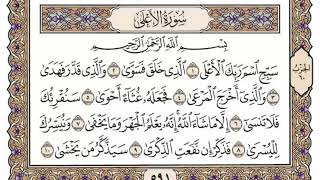 سُورَةُ الأَعْلَىٰ
بِسْمِ ٱللَّهِ ٱلرَّحْمَٰنِ ٱلرَّحِيمِ
سَبِّحِ ٱسْمَ رَبِّكَ ٱلْأَعْلَى ١ ٱلَّذِى خَلَقَ فَسَوَّىٰ ٢ وَٱلَّذِى قَدَّرَ فَهَدَىٰ
٣ وَٱلَّذِىٓ أَخْرَجَ ٱلْمَرْعَىٰ ٤ فَجَعَلَهُۥ غُثَآءً أَحْوَىٰ ٥ سَنُقْرِئُكَ
فَلَا تَنسَىٰٓ ٦ إِلَّا مَا شَآءَ ٱللَّهُ إِنَّهُۥ يَعْلَمُ ٱلْجَهْرَ وَمَا يَخْفَىٰ ٧ وَنُيَسِّرُكَ
لِلْيُسْرَىٰ ٨ فَذَكِّرْ إِن نَّفَعَتِ ٱلذِّكْرَىٰ ٩ سَيَذَّكَّرُ مَن يَخْشَىٰ ١٠
الحزب
٦٠
٥٩١